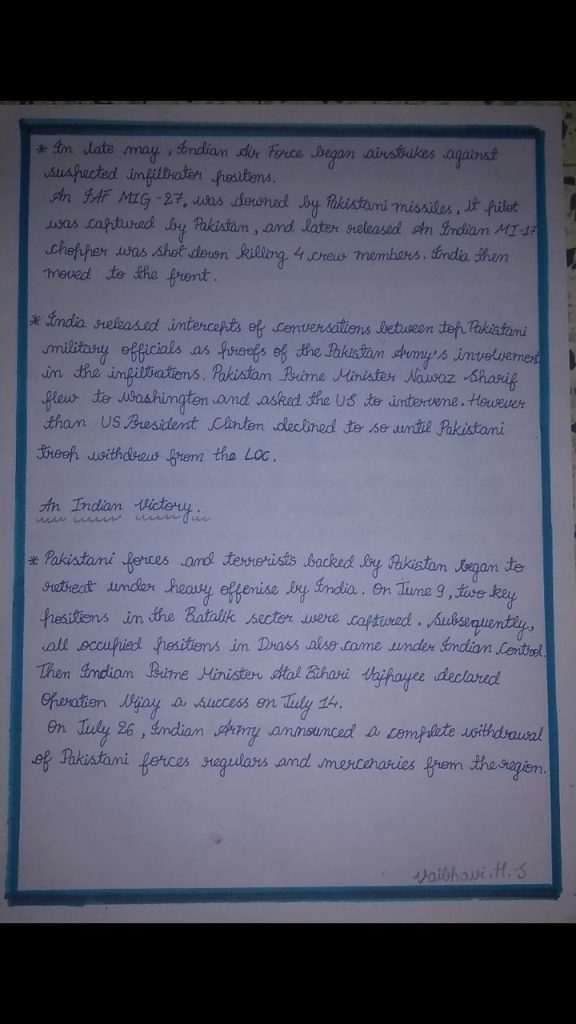 * In late may, Indian Air Force began airstrikes against
suspected infiltrator positions.
An IAF MIG-27, was downed by Pakistani missiles, it pilot
was captured by Pakistan, and later released An Indian MI-17
chopper was shot down killing 4 crew members. India then
moved to the front.
* India released intercepts of conversations between top Pakistani
military officials as proofs of the Pakistan Army's involvement
in the infiltrations. Pakistan Prime Minister Nawaz Sharif
flew to Washington and asked the US to intervene. However
than US President Clinton declined to so until Pakistani
troop withdrew from the LOC.
An Indian Victory.
* Pakistani forces and terrorists backed by Pakistan began to
retreat under heavy offenise by India. On June 9, two key
positions in the Batalik sector were captured. Subsequently,
all occupied positions in Drass also came under Indian Control.
Then Indian Prime Minister Atal Bihari Vajpayee declared
Operation Vijay a success on July 14.
On July 26, Indian Army announced a complete withdrawal
of Pakistani forces regulars and mercenaries from the region.
Vaibhavi.H.S